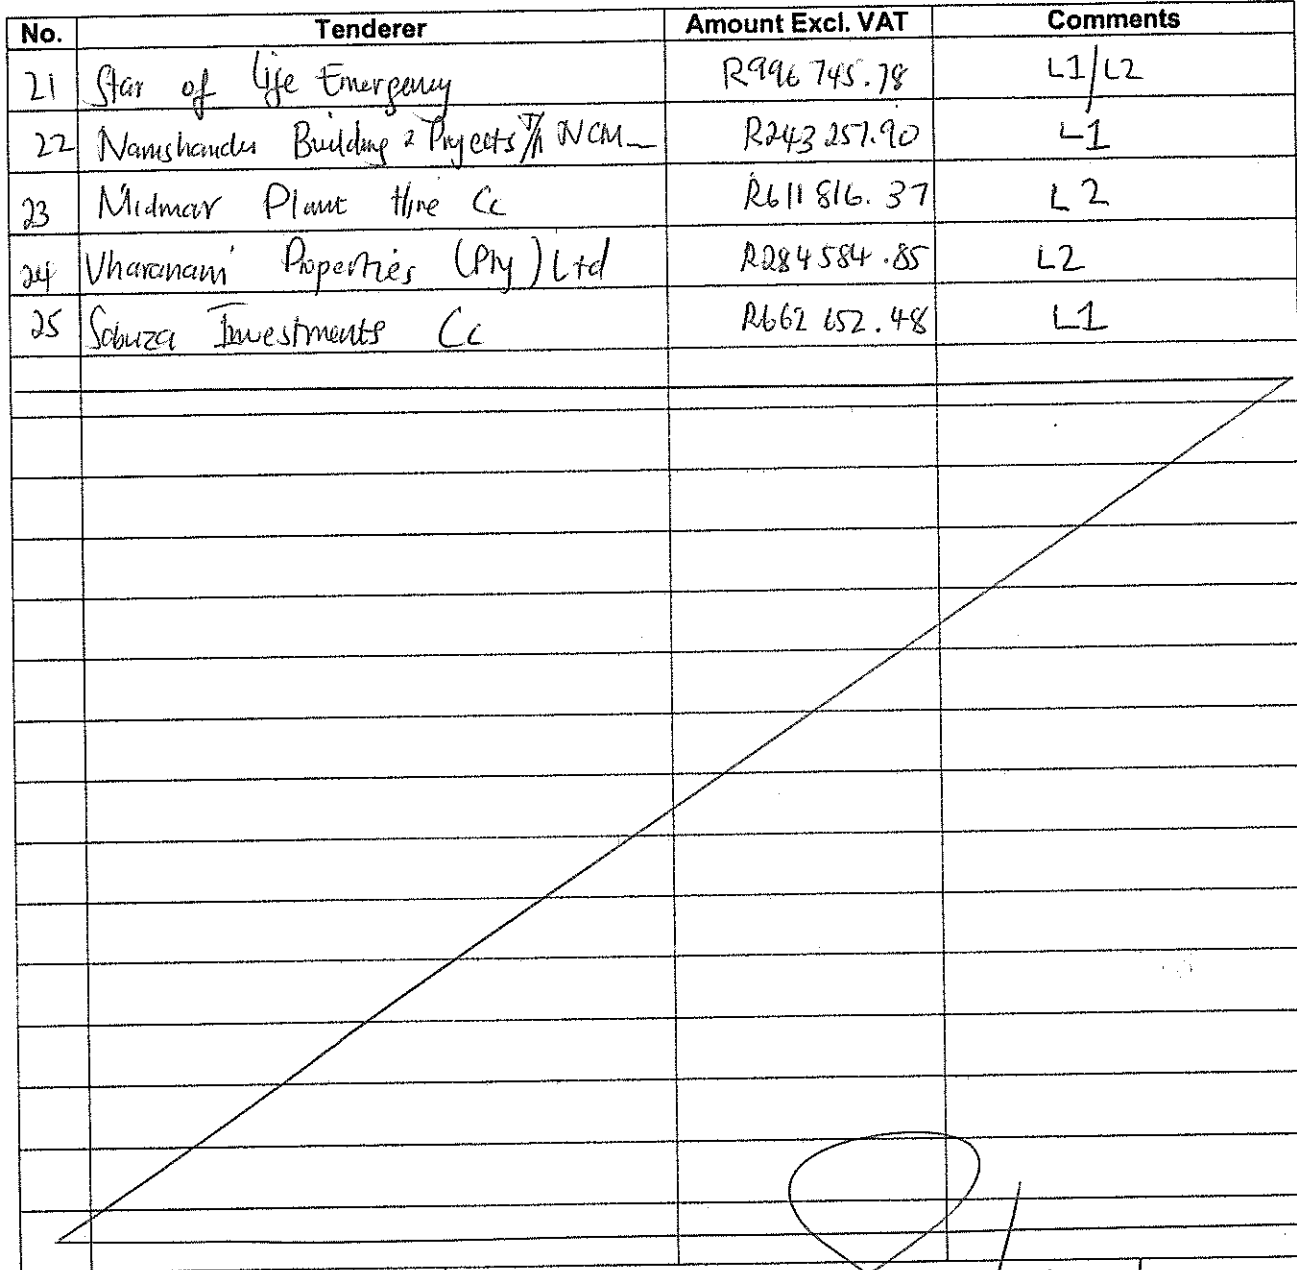 No. Tenderer Amount Excl. VAT Comments
21 Star of life Emergency R996 745.78 L1/L2
22 Building & Projects T/A NCM R243 257.90 L1
23 Midmar Plant Hire Cc R611 816.37 L2
24 Vharanani Properties (Pty) Ltd R284 584.85 L2
25 Sobuza Investments Cc R662 652.48 L1